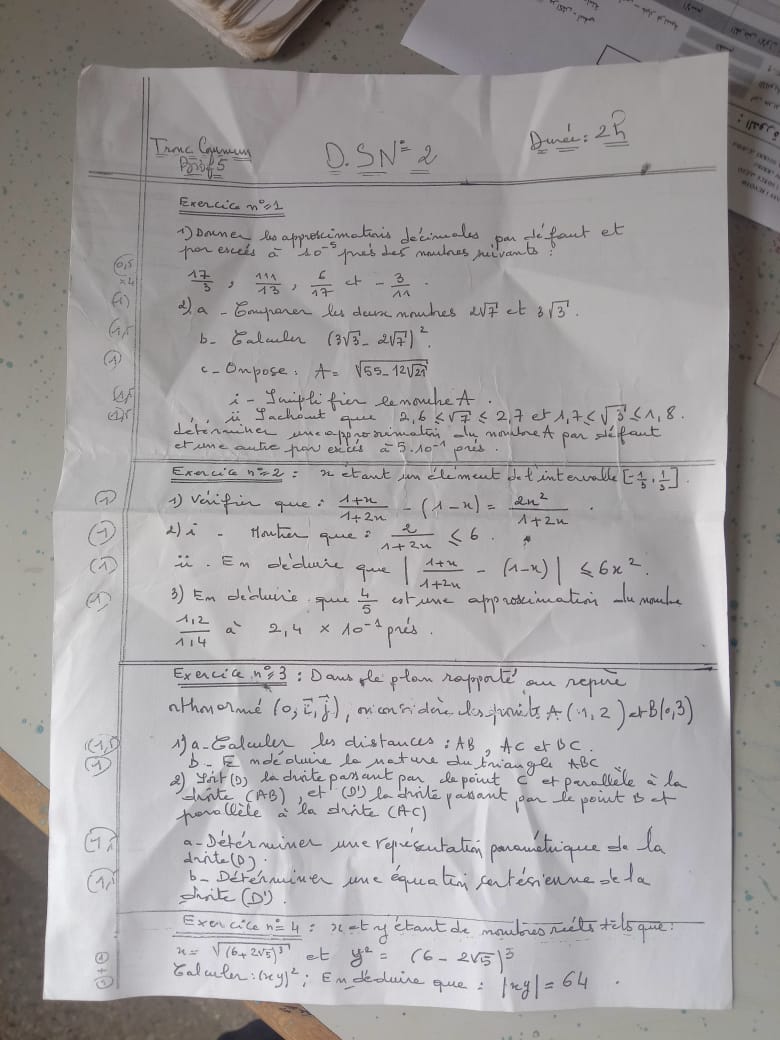 Tronc Commun
Biof 5
D.S N° 2
Durée : 2h
Exercice n°1
1) Donner les approximations décimales par défaut et
par excès à 10^-5 près des nombres suivants :
17/3 , 111/13 , 6/17 et - 3/11 .
2) a - Comparer les deux nombres 2√7 et 3√3 .
b - Calculer (3√3 - 2√7)² .
c - On pose : A = √(55 - 12√21)
i - Simplifier le nombre A .
ii Sachant que 2,6 ≤ √7 ≤ 2,7 et 1,7 ≤ √3 ≤ 1,8 .
déterminer une approximation du nombre A par défaut
et une autre par excès à 5.10^-1 près .
Exercice n°2 : x étant un élément de l'intervalle
1) Vérifier que : (1+x)/(1+2x) - (1-x) = 2x²/(1+2x) .
2) i - Montrer que : 2/(1+2x) ≤ 6 .
ii . En déduire que | (1+x)/(1+2x) - (1-x) | ≤ 6x² .
3) En déduire que 4/5 est une approximation du nombre
1,2/1,4 à 2,4 × 10^-1 près .
Exercice n°3 : Dans le plan rapporté au repère
orthonormé (0; i⃗, j⃗), on considère les points A(1,2) et B(0,3)
1) a - Calculer les distances : AB , AC et BC .
b - En déduire la nature du triangle ABC
2) Soit (D) la droite passant par le point C et parallèle à la
droite (AB) , et (D') la droite passant par le point B et
parallèle à la droite (AC)
a - Déterminer une représentation paramétrique de la
droite (D) .
b - Déterminer une équation cartésienne de la
droite (D') .
Exercice n° 4 : x et y étant de nombres réels tels que :
x = √(6+2√5)³ et y² = (6 - 2√5)³
Calculer : (xy)² ; En déduire que : |xy| = 64 .